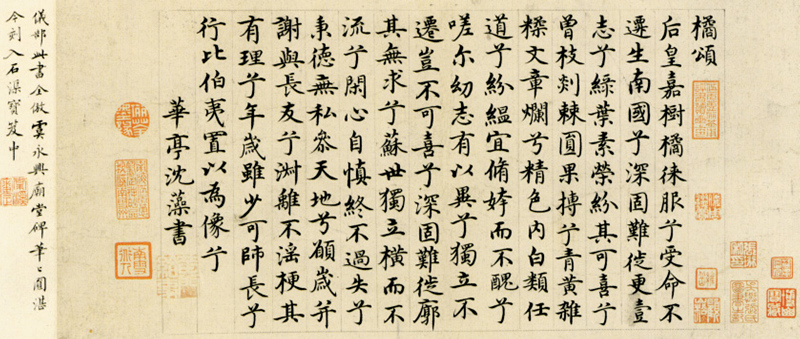 橘頌
后皇嘉樹橘徠服兮受命不
遷生南國兮深固難徙更壹
志兮綠葉素榮紛其可喜兮
曾枝剡棘圓果摶兮青黃雜
糅文章爛兮精色內白類任
道兮紛緼宜脩姱而不醜兮
嗟尔幼志有以異兮獨立不
遷豈不可喜兮深固難徙廓
其無求兮蘇世獨立橫而不
流兮閑心自慎終不過失兮
秉德無私叅天地兮願歲并
謝與長友兮淑離不淫梗其
有理兮年歲雖少可師長兮
行比伯夷置以為像兮
華亭沈藻書
儀部此書全倣虞永興廟堂碑筆〻圓湛
今刻入石渠寶笈中